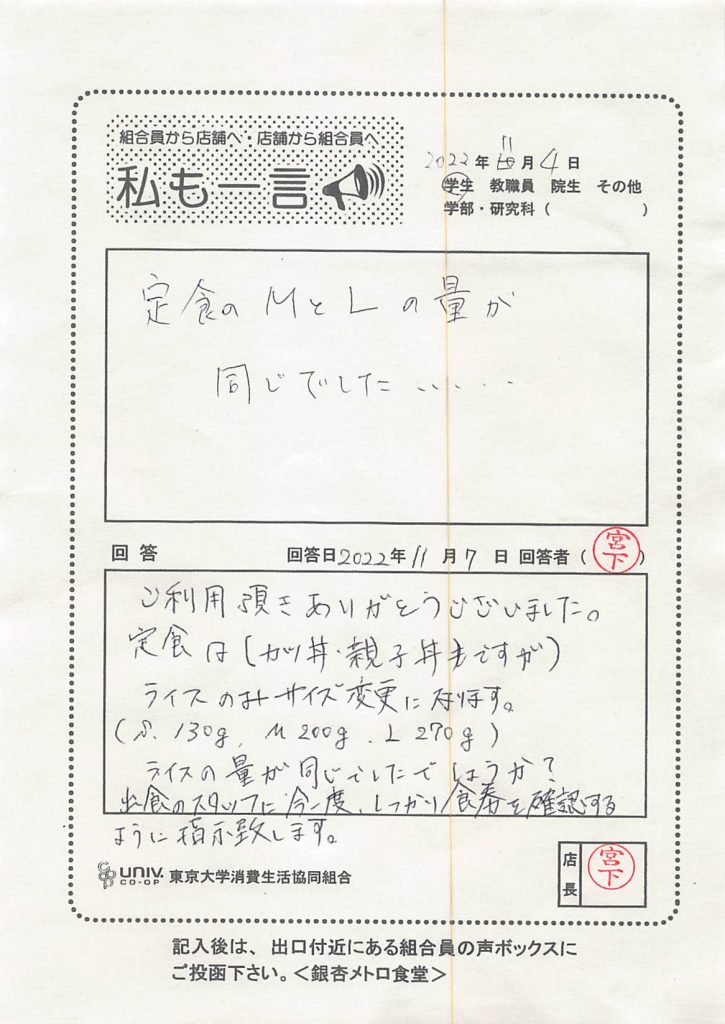 組合員から店舗へ・店舗から組合員へ
私も一言
2022年11月4日
学生 教職員 院生 その他
学部・研究科( )
定食のMとLの量が
同じでした.....
回答 回答日2022年11月7日 回答者(宮下)
ご利用頂きありがとうございました。
定食は(カツ丼・親子丼もですが)
ライスのみサイズ変更になります。
(S.130g, M200g, L270g)
ライスの量が同じでしたでしょうか?
出食のスタッフに今一度、しっかり食券を確認する
ように指示致します。
UNIV. CO-OP 東京大学消費生活協同組合
店長 宮下
記入後は、出口付近にある組合員の声ボックスに
ご投函下さい。<銀杏メトロ食堂>